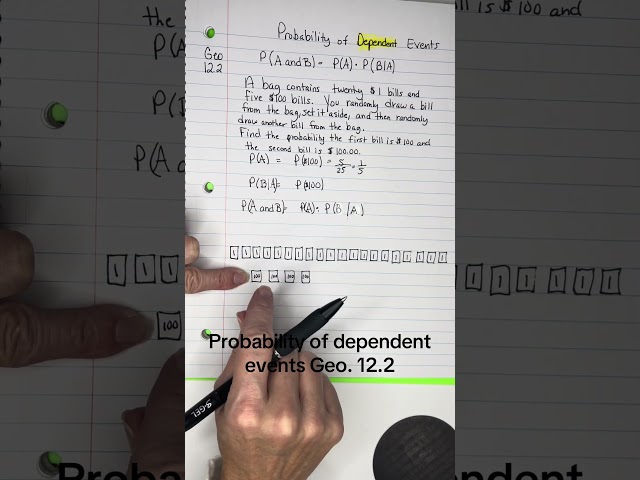 Probability of Dependent Events
Geo
12.2
P(A and B) = P(A) · P(B|A)
A bag contains twenty $1 bills and
five $100 bills. You randomly draw a bill
from the bag, set it aside, and then randomly
draw another bill from the bag.
Find the probability the first bill is $100 and
the second bill is $100.00.
P(A) = P($100) = 5/25 = 1/5
P(B|A) = P($100)
P(A and B) = P(A) · P(B|A)
1 1 1 1 1 1 1 1 1 1 1 1 1 1 1 1 1 1 1 1
100 100 100 100
Probability of dependent
events Geo. 12.2
G-GEL
the
P(A)
P(A
bill is $100 and
1 1 1
100
Proba
ndent